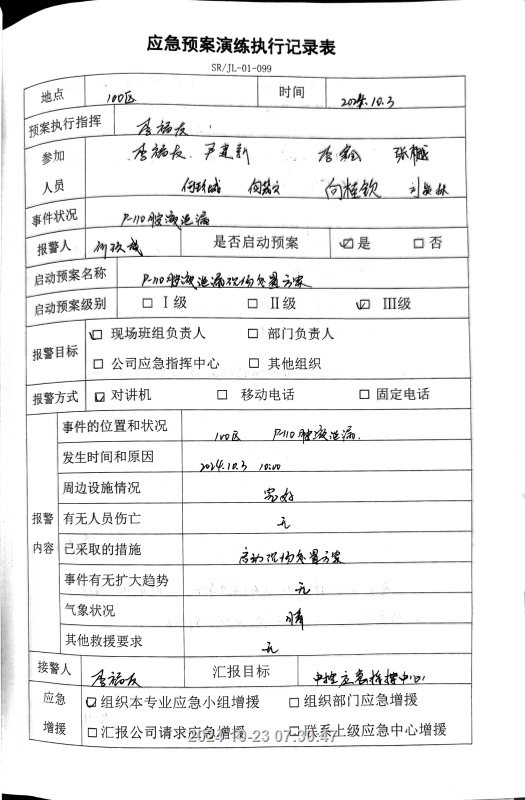 应急预案演练执行记录表
SR/JL-01-099
地点 100区 时间 2024.10.3
预案执行指挥 李福友
参加 李福友 尹建新 李鑫 张樾
人员 向桂钦
事件状况 P-110胺液泄漏
报警人 是否启动预案 ☑是 □否
启动预案名称 P-110胺液泄漏现场处置方案
启动预案级别 □Ⅰ级 □Ⅱ级 ☑Ⅲ级
报警目标 ☑现场班组负责人 □部门负责人
□公司应急指挥中心 □其他组织
报警方式 ☑对讲机 □移动电话 □固定电话
报警内容 事件的位置和状况 100区 P-110胺液泄漏.
发生时间和原因 2024.10.3 10:00
周边设施情况 完好
有无人员伤亡 无
已采取的措施 启动现场处置方案
事件有无扩大趋势 无
气象状况 晴
其他救援要求 无
接警人 李福友 汇报目标 中控应急指挥中心
应急增援 ☑组织本专业应急小组增援 □组织部门应急增援
□汇报公司请求应急增援 □联系上级应急中心增援
2024-10-23 07:30:47